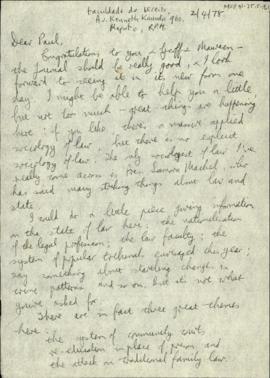 Faculdade de Direito
Av. Kenneth Kaunda 960
Maputo, RPM
2/4/78
Dear Paul,
Congratulations to you & Geoff & Maureen –
the journal should be really good, & I look
forward to seeing it in its new form one
day. I might be able to help you a little,
but not too much – great things are happening
here; if you like, there's a massive applied
sociology of law, but there is no explicit
sociology of law. The only sociologist of law I've
really come across is Pres. Samora Machel, who
has said many striking things about law and
state.
I could do a little piece giving information
on the state of law here: the nationalisation
of the legal profession; the law faculty; the
system of popular tribunals envisaged this year;
say something about startling changes in
crime patterns and so on, but it's not what
you've asked for.
There are in fact three great themes
here: the system of community courts,
re-education in place of prison, and
the attack on traditional family law.